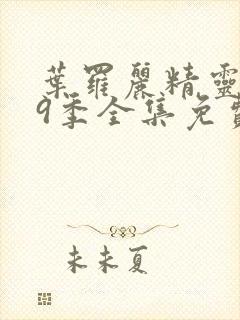 葉羅麗精靈
9季全集免費
未未夏